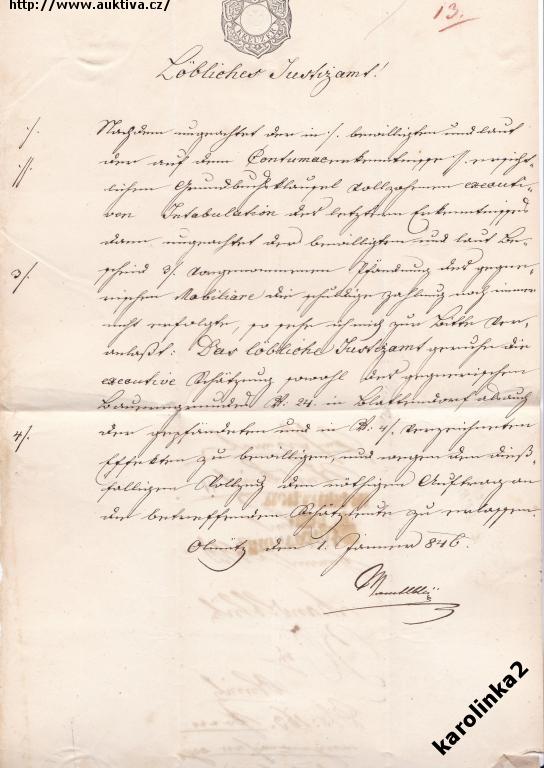 http://www.auktiva.cz/
KREUZER
13.
Löbliches Justizamt!
·/. Nachdem ungeachtet der in ·/. bewilligten und laut
·//. der auf dem Contumazerkenntnisse //. ersicht-
lichen Grundbuchsklausel vollzohenen executi-
ven Intabulation des letztern Erkenntnisses
dann ungeachtet der bewilligten und laut Be-
3/. scheid 3/. vorgenommenen Pfändung des gegne-
rischen Mobiliars die schuldige Zahlung noch immer
nicht erfolgte, so sehe ich mich zur Bitte ver-
anlaßt: Das löbliche Justizamt geruhe die
executive Schätzung sowohl des gegnerischen
Bauerngrundes N: 24. in Blattendorf als auch
4/. der gepfändeten und in N: 4/. verzeichneten
Effekten zu bewilligen, und wegen den dieß-
falligen Vollzug den nöthigen Auftrag an
die betreffenden Schätzleute zu erlassen.
Olmütz den 1. Jänner 846.
karolinka2